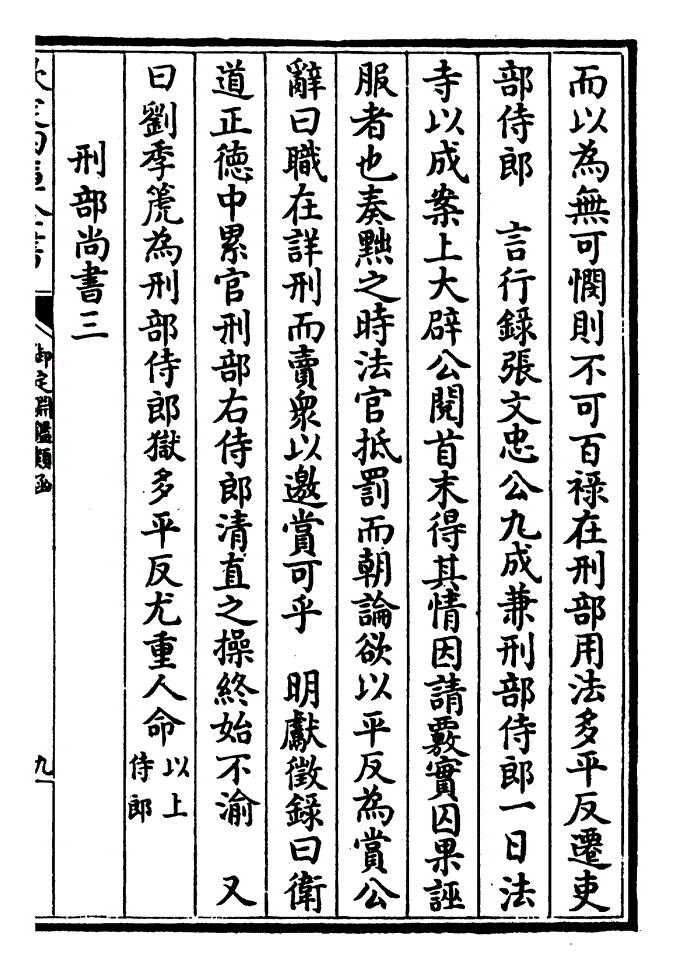 而以為無可憫則不可百祿在刑部用法多平反遷吏
部侍郎　言行錄張文忠公九成兼刑部侍郎一日法
寺以成案上大辟公閱首末得其情因請覈實囚果誣
服者也奏黜之時法官抵罰而朝論欲以平反為賞公
辭曰職在詳刑而賣衆以邀賞可乎　明獻徵錄曰衛
道正德中累官刑部右侍郎清直之操終始不渝　又
曰劉季箎為刑部侍郎獄多平反尤重人命以上侍郎
刑部尚書三
欽定四庫全書
御定淵鑑類函
九